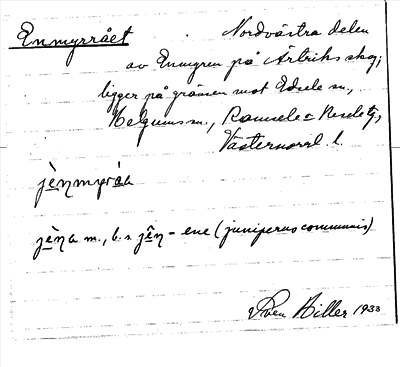 Enmyrrået
Nordvästra delen
av Enmyren på Ärtriks skog;
ligger på gränsen mot Edsele sn.,
Helgums sn., Ramsele o Resele tg,
Västernorrl. l.
jènmyråa
jèna m., b. s jên - ene (juniperus communis)
Sven Hiller 1933